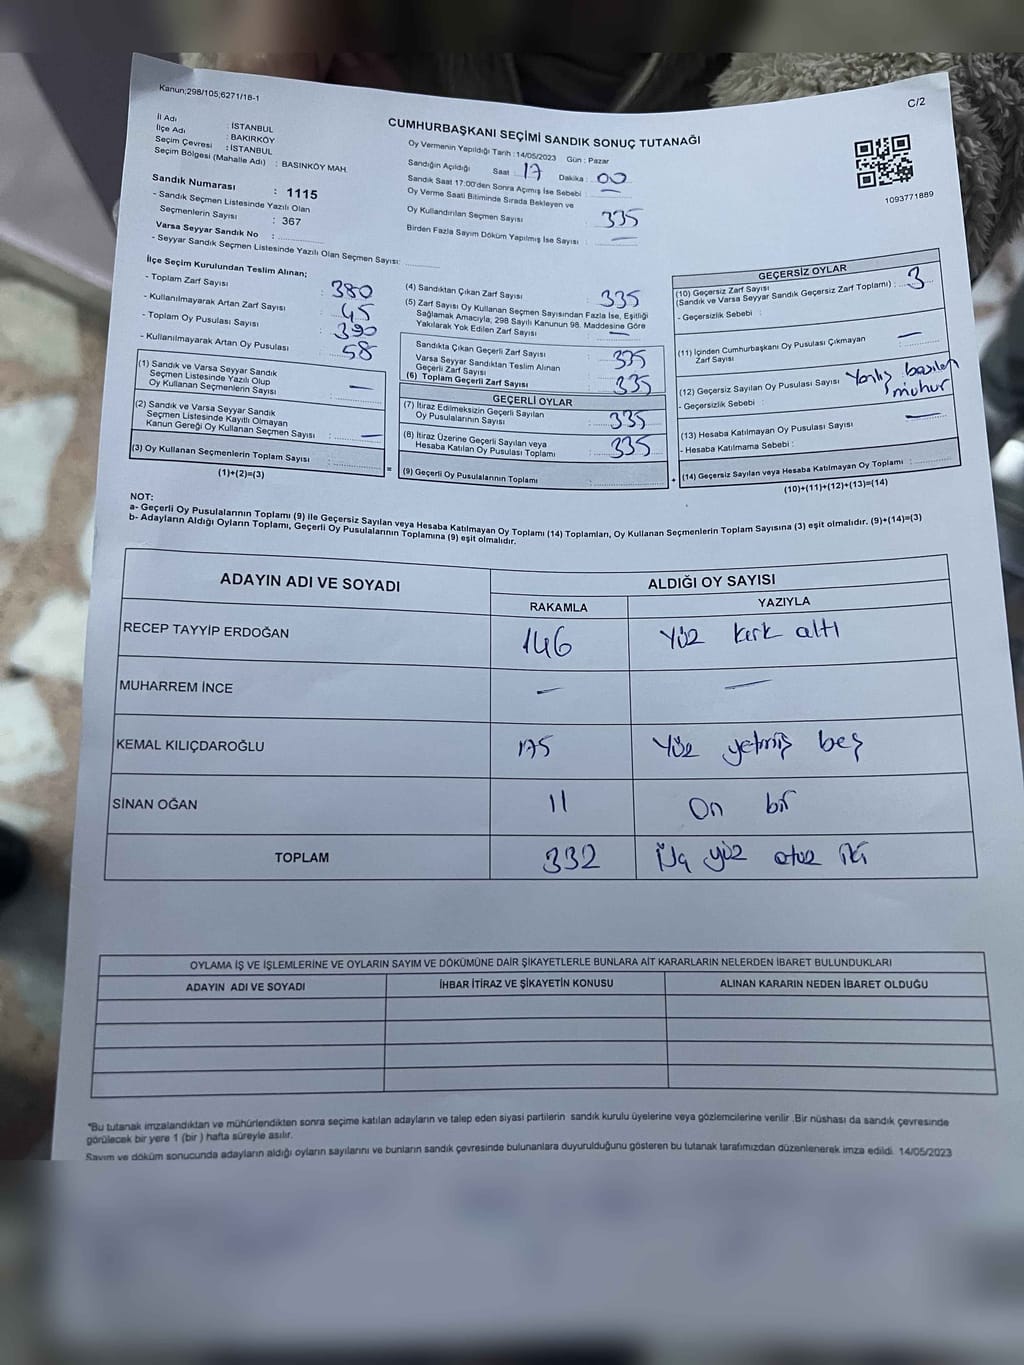 Kanun;298/105,6271/16-1
C/2
CUMHURBAŞKANI SEÇİMİ SANDIK SONUÇ TUTANAĞI
İl Adı : İSTANBUL
İlçe Adı : BAKIRKÖY
Seçim Çevresi : İSTANBUL
Seçim Bölgesi (Mahalle Adı) : BASINKÖY MAH.
Sandık Numarası : 1115
- Sandık Seçmen Listesinde Yazılı Olan
Seçmenlerin Sayısı : 367
Varsa Seyyar Sandık No :
- Seyyar Sandık Seçmen Listesinde Yazılı Olan Seçmen Sayısı:
Oy Vermenin Yapıldığı Tarih : 14/05/2023 Gün : Pazar
Sandığın Açıldığı Saat : 17 Dakika : 00
Sandık Saat 17:00'den Sonra Açımış İse Sebebi : —
Oy Verme Saati Bitiminde Sırada Bekleyen ve
Oy Kullandırılan Seçmen Sayısı 335
Birden Fazla Sayım Döküm Yapılmış İse Sayısı —
1093771889
İlçe Seçim Kurulundan Teslim Alınan;
- Toplam Zarf Sayısı : 380
- Kullanılmayarak Artan Zarf Sayısı : 45
- Toplam Oy Pusulası Sayısı : 390
- Kullanılmayarak Artan Oy Pusulası : 58
(1) Sandık ve Varsa Seyyar Sandık
Seçmen Listesinde Yazılı Olup
Oy Kullanan Seçmenlerin Sayısı : —
(2) Sandık ve Varsa Seyyar Sandık
Seçmen Listesinde Kayıtlı Olmayan
Kanun Gereği Oy Kullanan Seçmen Sayısı : —
(3) Oy Kullanan Seçmenlerin Toplam Sayısı :
(1)+(2)=(3)
=
(4) Sandıktan Çıkan Zarf Sayısı : 335
(5) Zarf Sayısı Oy Kullanan Seçmen Sayısından Fazla İse, Eşitliği
Sağlamak Amacıyla, 298 Sayılı Kanunun 98. Maddesine Göre
Yakılarak Yok Edilen Zarf Sayısı : —
Sandıkta Çıkan Geçerli Zarf Sayısı : 335
Varsa Seyyar Sandıktan Teslim Alınan
Geçerli Zarf Sayısı
(6) Toplam Geçerli Zarf Sayısı : 335
GEÇERLİ OYLAR
(7) İtiraz Edilmeksizin Geçerli Sayılan
Oy Pusulalarının Sayısı : 335
(8) İtiraz Üzerine Geçerli Sayılan veya
Hesaba Katılan Oy Pusulası Toplamı : 335
(9) Geçerli Oy Pusulalarının Toplamı :
+
GEÇERSİZ OYLAR
(10) Geçersiz Zarf Sayısı
(Sandık ve Varsa Seyyar Sandık Geçersiz Zarf Toplamı) : 3
- Geçersizlik Sebebi :
(11) İçinden Cumhurbaşkanı Oy Pusulası Çıkmayan
Zarf Sayısı : —
(12) Geçersiz Sayılan Oy Pusulası Sayısı Yanlış basılan
- Geçersizlik Sebebi : mühür
(13) Hesaba Katılmayan Oy Pusulası Sayısı : —
- Hesaba Katılmama Sebebi :
(14) Geçersiz Sayılan veya Hesaba Katılmayan Oy Toplamı :
(10)+(11)+(12)+(13)=(14)
NOT:
a- Geçerli Oy Pusulalarının Toplamı (9) ile Geçersiz Sayılan veya Hesaba Katılmayan Oy Toplamı (14) Toplamları, Oy Kullanan Seçmenlerin Toplam Sayısına (3) eşit olmalıdır. (9)+(14)=(3)
b- Adayların Aldığı Oyların Toplamı, Geçerli Oy Pusulalarının Toplamına (9) eşit olmalıdır.
ADAYIN ADI VE SOYADI ALDIĞI OY SAYISI
RAKAMLA YAZIYLA
RECEP TAYYİP ERDOĞAN 146 Yüz kırk altı
MUHARREM İNCE — —
KEMAL KILIÇDAROĞLU 175 Yüz yetmiş beş
SİNAN OĞAN 11 On bir
TOPLAM 332 Üç yüz otuz iki
OYLAMA İŞ VE İŞLEMLERİNE VE OYLARIN SAYIM VE DÖKÜMÜNE DAİR ŞİKAYETLERLE BUNLARA AİT KARARLARIN NELERDEN İBARET BULUNDUKLARI
ADAYIN ADI VE SOYADI İHBAR İTİRAZ VE ŞİKAYETİN KONUSU ALINAN KARARIN NEDEN İBARET OLDUĞU
*Bu tutanak imzalandıktan ve mühürlendikten sonra seçime katılan adayların ve talep eden siyasi partilerin sandık kurulu üyelerine veya gözlemcilerine verilir .Bir nüshası da sandık çevresinde
görülecek bir yere 1 (bir ) hafta süreyle asılır.
Sayım ve döküm sonucunda adayların aldığı oyların sayılarını ve bunların sandık çevresinde bulunanlara duyurulduğunu gösteren bu tutanak tarafımızdan düzenlenerek imza edildi. 14/05/2023